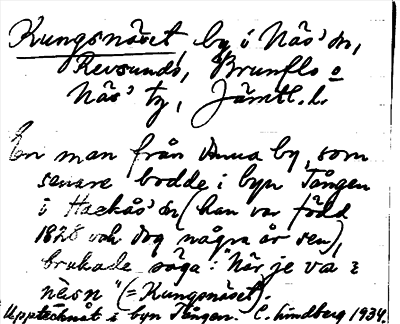 Kungsnäset, by i Näs' sn,
Revsunds, Brunflo o
Näs' tg, Jämtl. l.
En man från denna by, som
senare bodde i byn Tången
i Hackås' sn (han var född
1828 och dog några år sen),
brukade säga: "När je va i
näsn" (= Kungsnäset).
Upptecknat i byn Tången. C. Lindberg 1934.